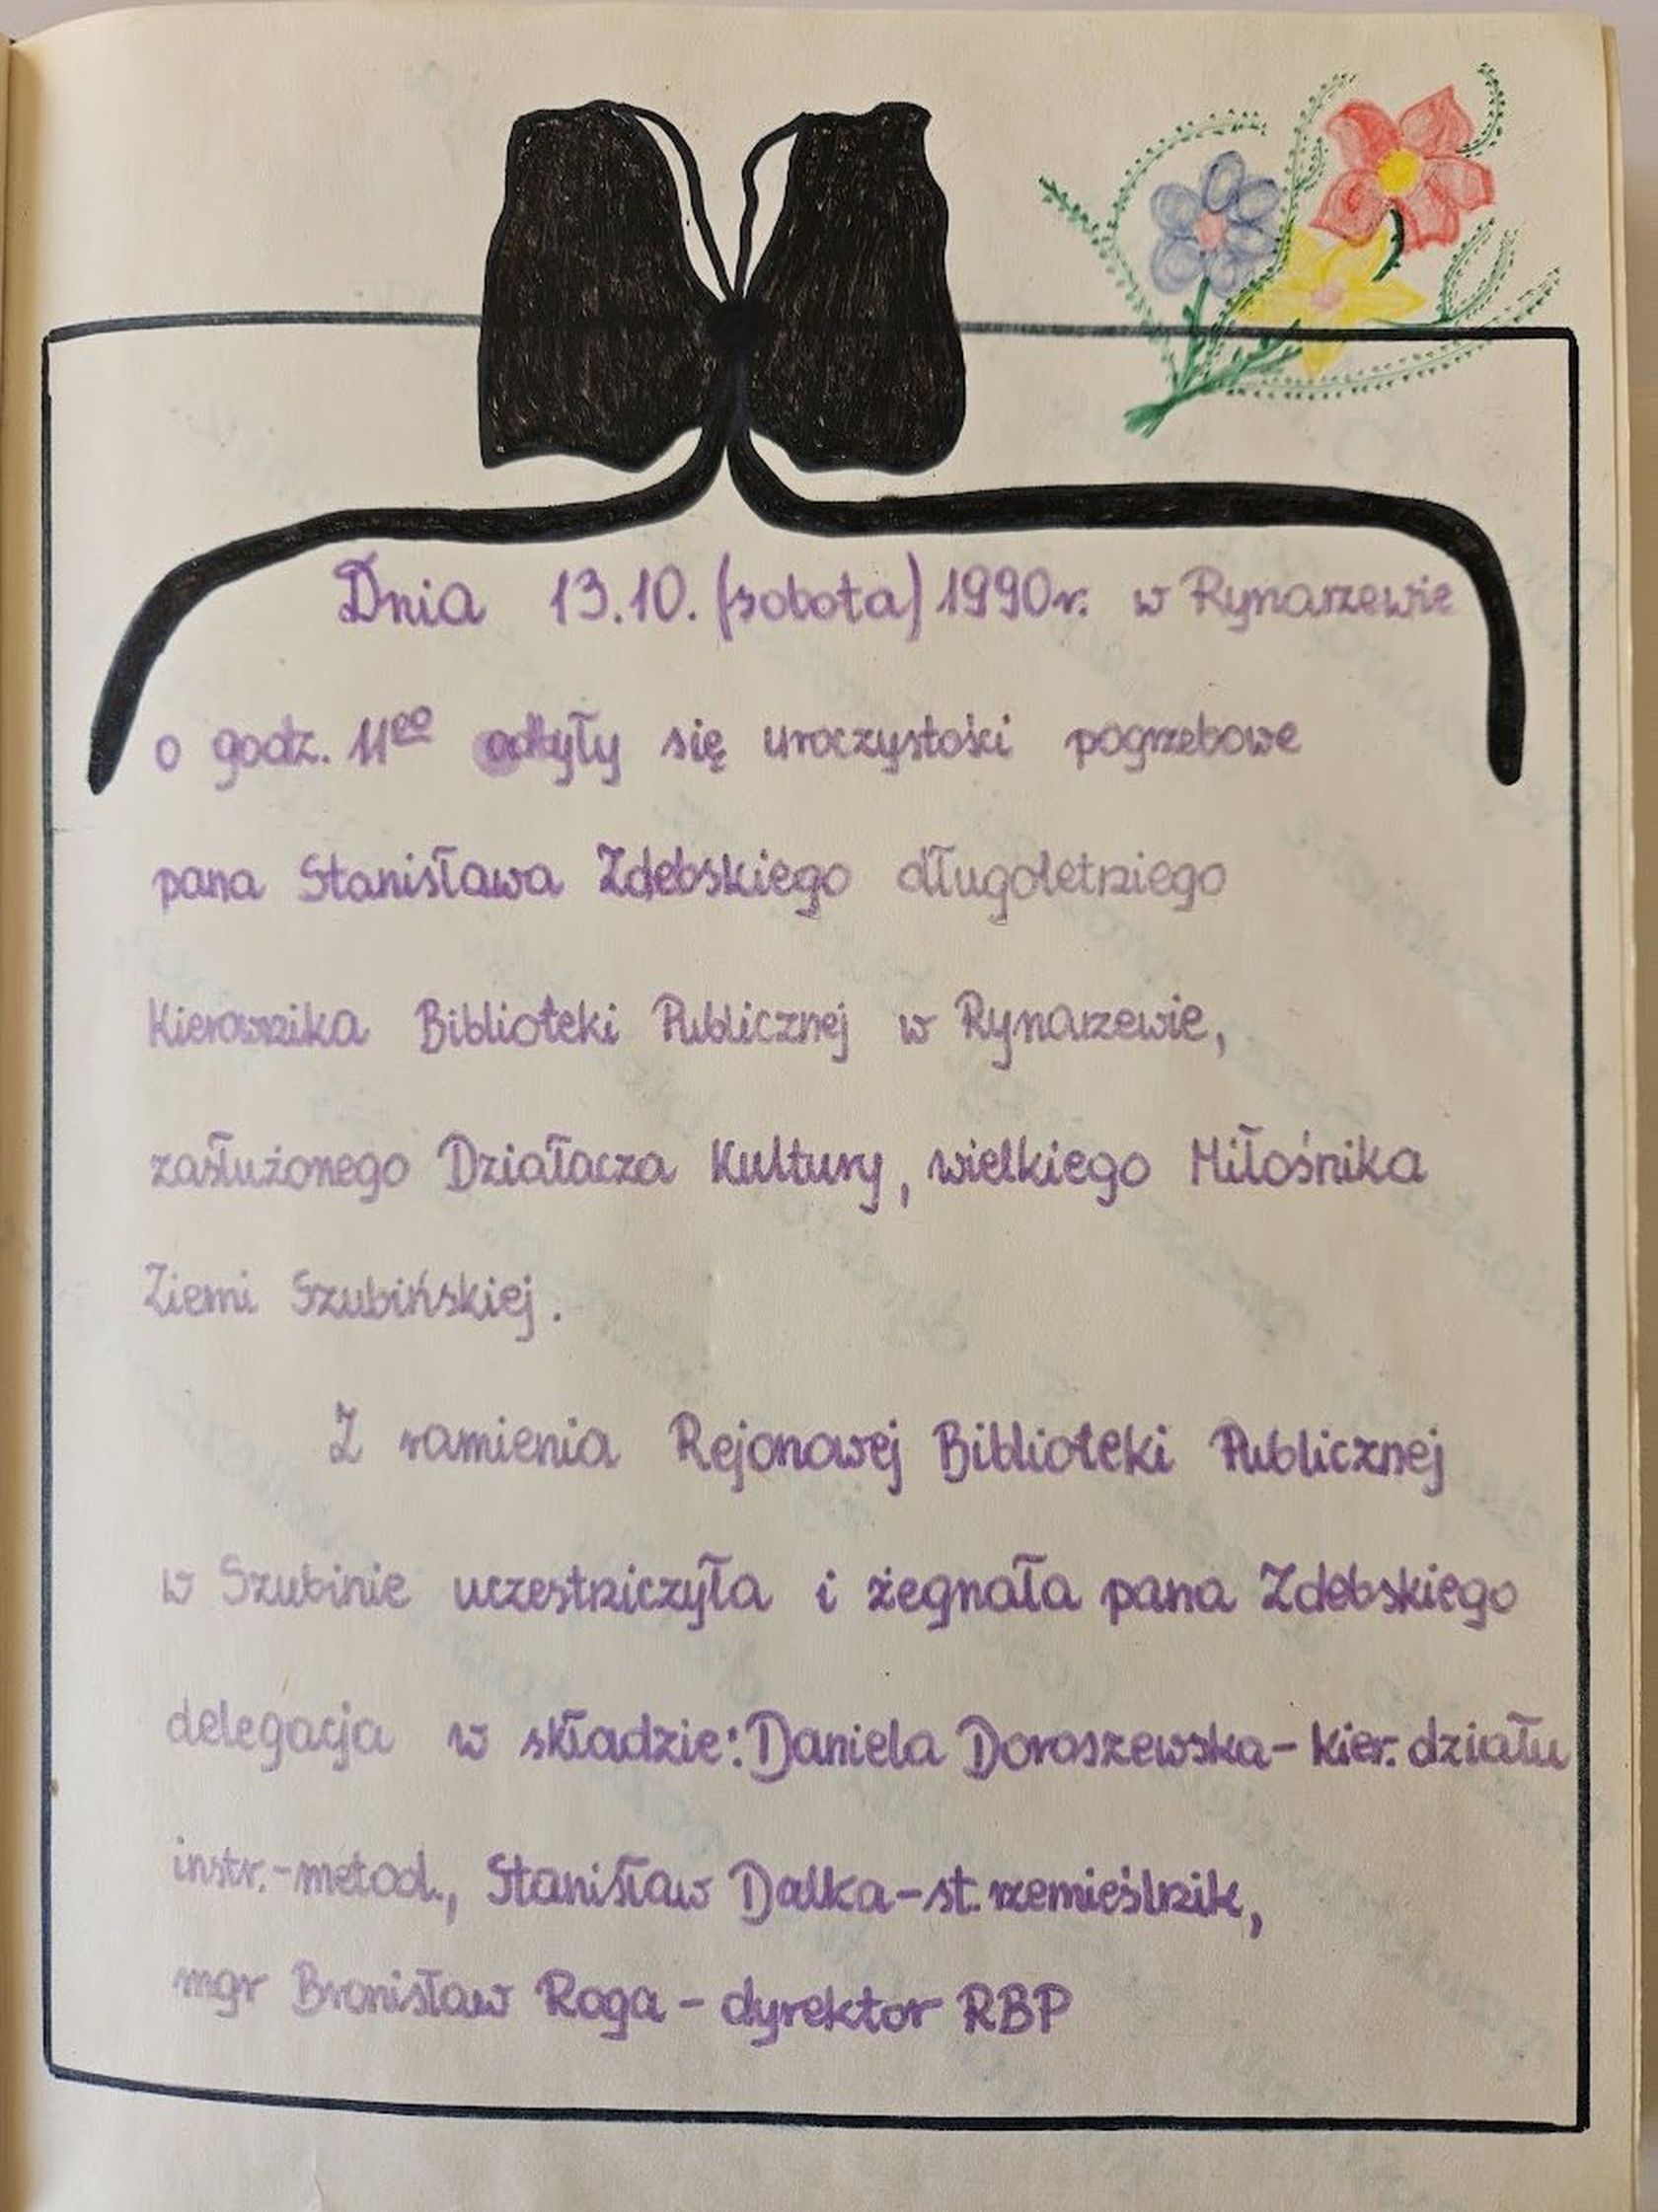 Dnia 13.10. (sobota) 1990r. w Rynarzewie
o godz. 11⁰⁰ odbyły się uroczystości pogrzebowe
pana Stanisława Zdebskiego długoletniego
Kierownika Biblioteki Publicznej w Rynarzewie,
zasłużonego Działacza Kultury, wielkiego Miłośnika
Ziemi Szubińskiej.
Z ramienia Rejonowej Biblioteki Publicznej
w Szubinie uczestniczyła i żegnała pana Zdebskiego
delegacja w składzie: Daniela Doroszewska - kier. działu
instr.-metod., Stanisław Dalka - st. rzemieślnik,
mgr Bronisław Roga - dyrektor RBP